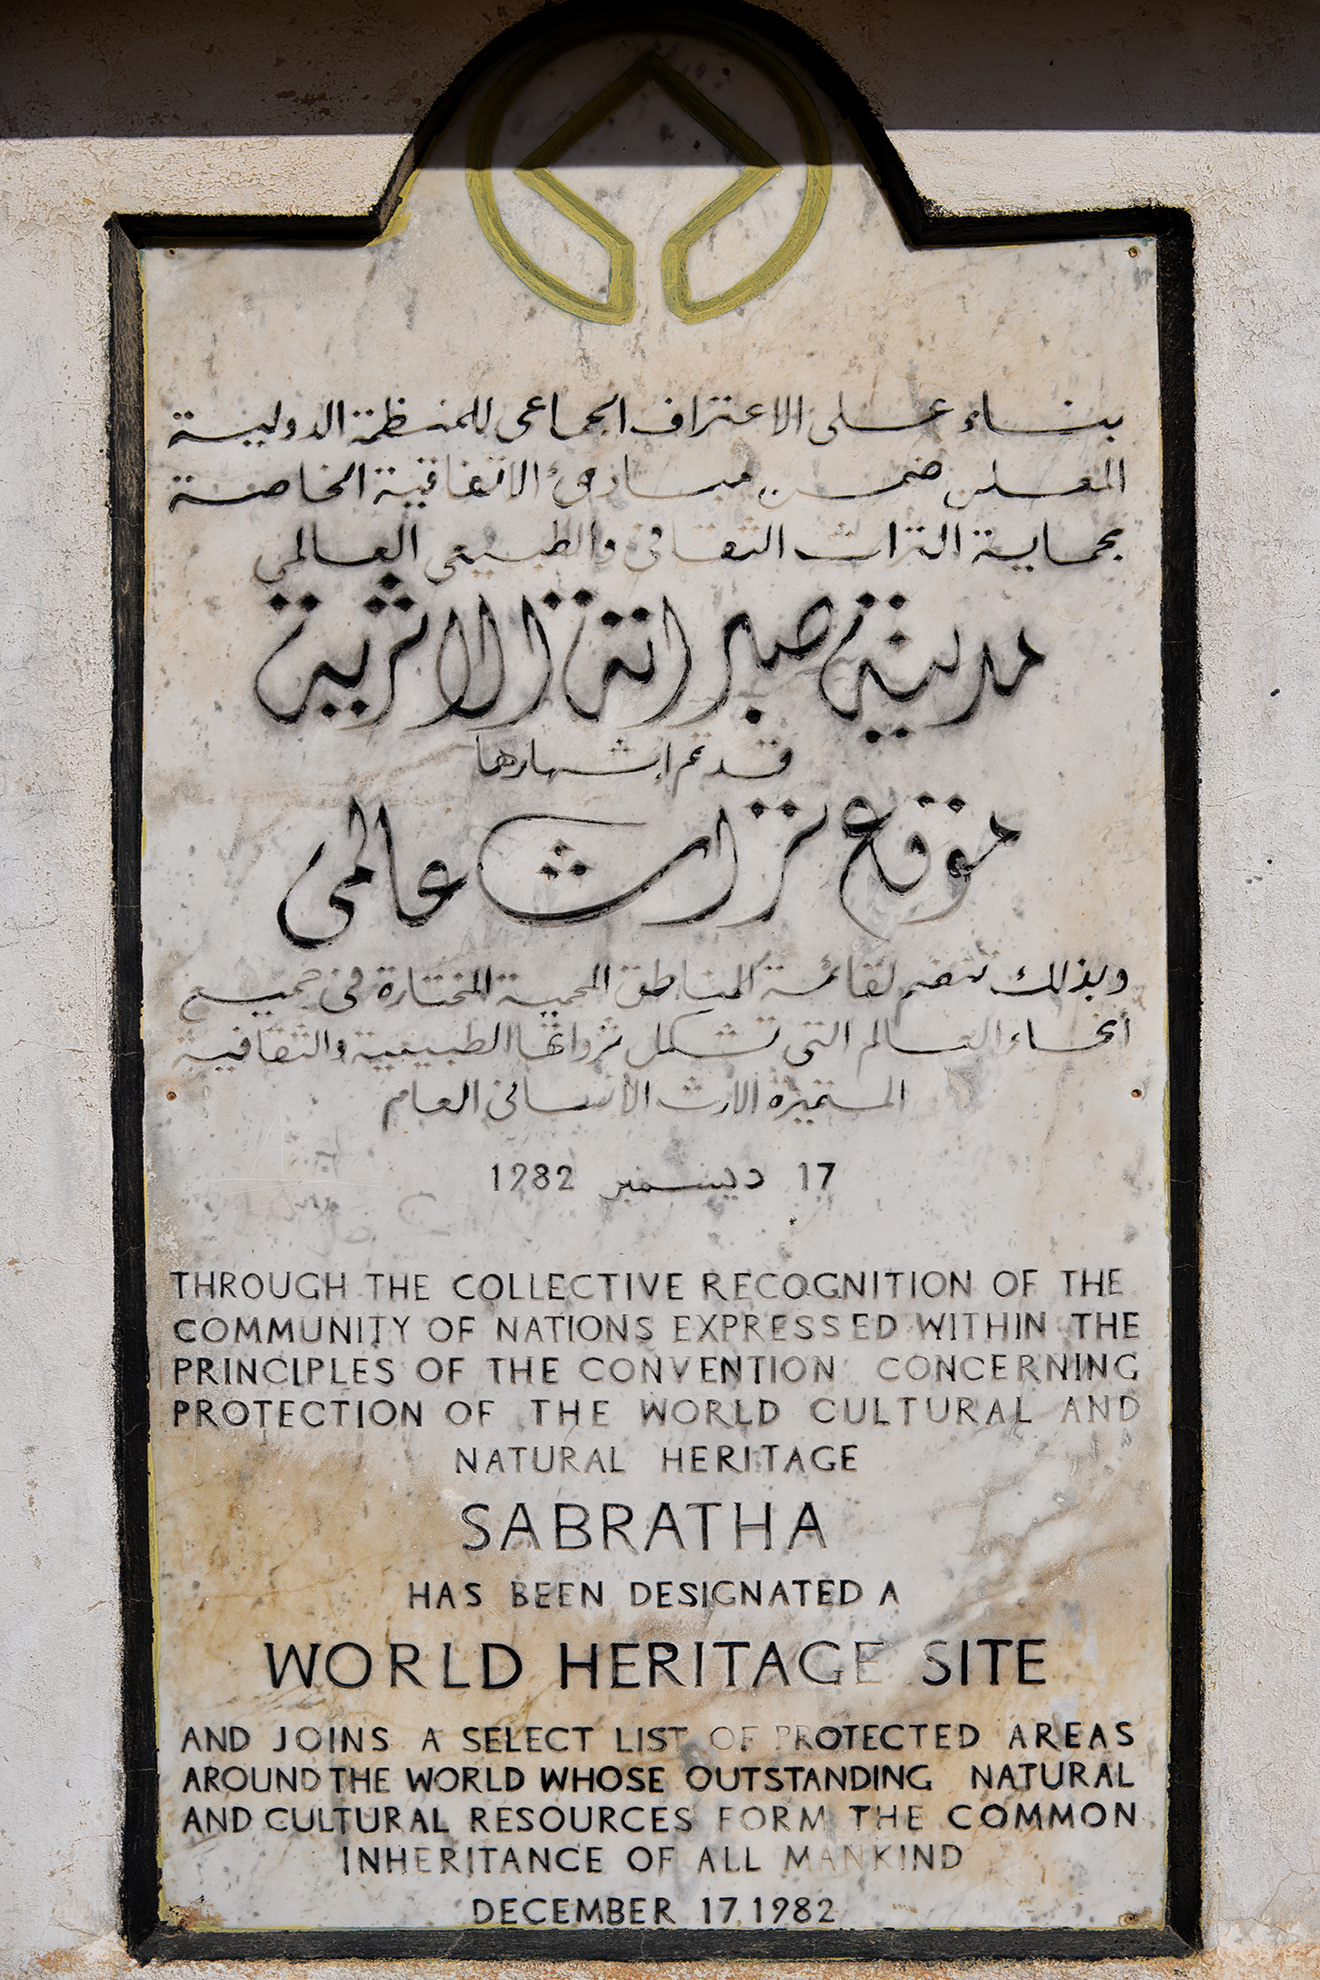 بناء على الاعتراف الجماعى للمنظمة الدولية
المعلن ضمن مبادئ الاتفاقية الخاصة
بحماية التراث الثقافى والطبيعى العالمي
مدينة صبراتة الاثرية
قد تم إشهارها
موقع تراث عالمى
وبذالك تنضم لقائمة المناطق المحمية المختارة فى جميع
أنحاء العالم التى تشكل ثرواتها الطبيعية والثقافية
المتميزة الارث الانسانى العام
17 ديسمبر 1982
THROUGH THE COLLECTIVE RECOGNITION OF THE
COMMUNITY OF NATIONS EXPRESSED WITHIN THE
PRINCIPLES OF THE CONVENTION CONCERNING
PROTECTION OF THE WORLD CULTURAL AND
NATURAL HERITAGE
SABRATHA
HAS BEEN DESIGNATED A
WORLD HERITAGE SITE
AND JOINS A SELECT LIST OF PROTECTED AREAS
AROUND THE WORLD WHOSE OUTSTANDING NATURAL
AND CULTURAL RESOURCES FORM THE COMMON
INHERITANCE OF ALL MANKIND
DECEMBER 17,1982